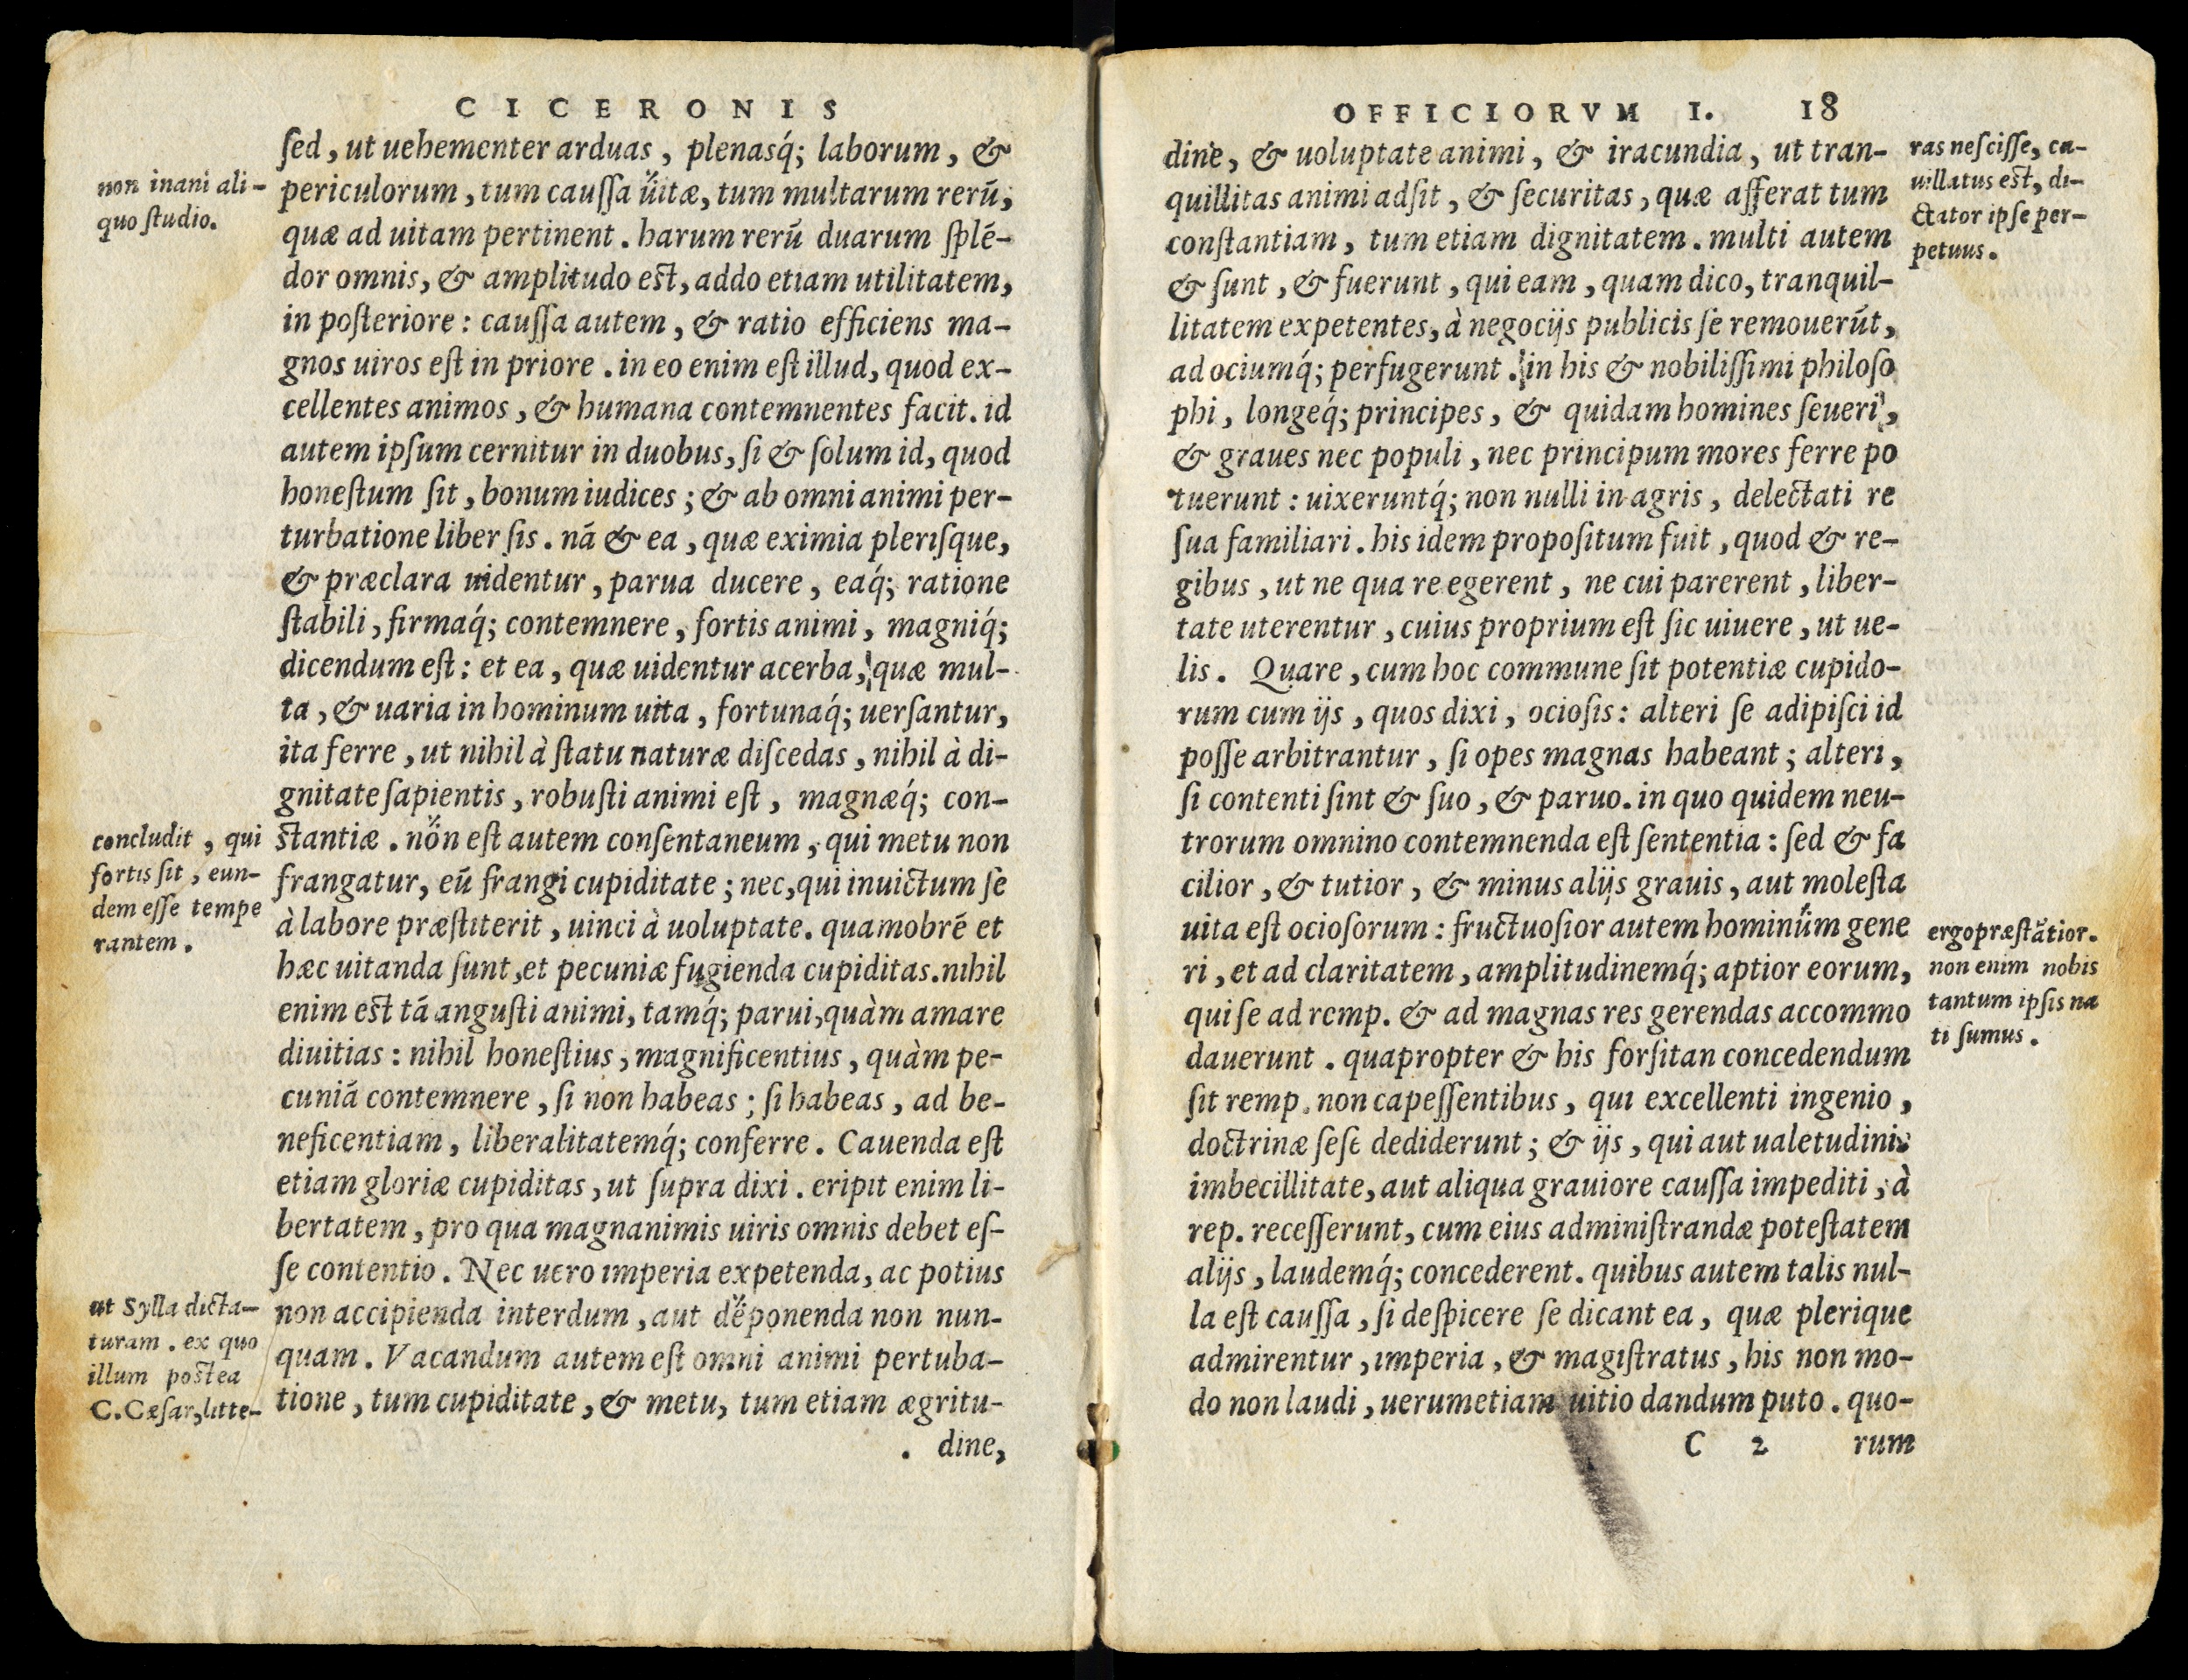 CICERONIS
ſed, ut uehementer arduas, plenasq́; laborum, &
periculorum, tum cauſſa uitæ, tum multarum rerū,
quæ ad uitam pertinent. harum rerū duarum ſplē-
dor omnis, & amplitudo est, addo etiam utilitatem,
in poſteriore: cauſſa autem, & ratio efficiens ma-
gnos uiros eſt in priore. in eo enim eſt illud, quod ex-
cellentes animos, & humana contemnentes facit. id
autem ipſum cernitur in duobus, ſi & ſolum id, quod
honeſtum ſit, bonum iudices; & ab omni animi per-
turbatione liber ſis. nā & ea, quæ eximia pleriſque,
& præclara uidentur, parua ducere, eaq́; ratione
ſtabili, firmaq́; contemnere, fortis animi, magniq́;
dicendum eſt: et ea, quæ uidentur acerba, quæ mul-
ta, & uaria in hominum uita, fortunaq́; uerſantur,
ita ferre, ut nihil à ſtatu naturæ diſcedas, nihil à di-
gnitate ſapientis, robuſti animi eſt, magnæq́; con-
stantiæ. non eſt autem conſentaneum, qui metu non
frangatur, eū frangi cupiditate; nec, qui inuictum ſe
à labore præſtiterit, uinci à uoluptate. quamobrē et
hæc uitanda ſunt, et pecuniæ fugienda cupiditas. nihil
enim est tā anguſti animi, tamq́; parui, quàm amare
diuitias: nihil honeſtius, magnificentius, quàm pe-
cuniā contemnere, ſi non habeas; ſi habeas, ad be-
neficentiam, liberalitatemq́; conferre. Cauenda eſt
etiam gloriæ cupiditas, ut ſupra dixi. eripit enim li-
bertatem, pro qua magnanimis uiris omnis debet eſ-
ſe contentio. Nec uero imperia expetenda, ac potius
non accipienda interdum, aut deponenda non nun-
quam. Vacandum autem eſt omni animi pertuba-
tione, tum cupiditate, & metu, tum etiam ægritu-
dine,
non inani ali-
quo ſtudio.
concludit, qui
fortis ſit, eun-
dem eſſe tempe
rantem.
ut Sylla dicta-
turam. ex quo
illum postea
C. Cæſar, litte-
OFFICIORVM I. 18
dine, & uoluptate animi, & iracundia, ut tran-
quillitas animi adſit, & ſecuritas, quæ afferat tum
conſtantiam, tum etiam dignitatem. multi autem
& ſunt, & fuerunt, qui eam, quam dico, tranquil-
litatem expetentes, à negocijs publicis ſe remouerūt,
ad ociumq́; perfugerunt. in his & nobiliſſimi philoſo
phi, longeq́; principes, & quidam homines ſeueri,
& graues nec populi, nec principum mores ferre po
tuerunt: uixeruntq́; non nulli in agris, delectati re
ſua familiari. his idem propoſitum fuit, quod & re-
gibus, ut ne qua re egerent, ne cui parerent, liber-
tate uterentur, cuius proprium eſt ſic uiuere, ut ue-
lis. Quare, cum hoc commune ſit potentiæ cupido-
rum cum ijs, quos dixi, ocioſis: alteri ſe adipiſci id
poſſe arbitrantur, ſi opes magnas habeant; alteri,
ſi contenti ſint & ſuo, & paruo. in quo quidem neu-
trorum omnino contemnenda eſt ſententia: ſed & fa
cilior, & tutior, & minus alijs grauis, aut moleſta
uita eſt ocioſorum: fructuoſior autem hominum gene
ri, et ad claritatem, amplitudinemq́; aptior eorum,
qui ſe ad remp. & ad magnas res gerendas accommo
dauerunt. quapropter & his forſitan concedendum
ſit remp. non capeſſentibus, qui excellenti ingenio,
doctrinæ ſeſe dediderunt; & ijs, qui aut ualetudinis
imbecillitate, aut aliqua grauiore cauſſa impediti, à
rep. receſſerunt, cum eius adminiſtrandæ poteſtatem
alijs, laudemq́; concederent. quibus autem talis nul-
la eſt cauſſa, ſi deſpicere ſe dicant ea, quæ plerique
admirentur, imperia, & magiſtratus, his non mo-
do non laudi, uerumetiam uitio dandum puto. quo-
C 2 rum
ras neſciſſe, ca-
uillatus est, di-
ctator ipſe per-
petuus.
ergo præſtātior.
non enim nobis
tantum ipſis na
ti ſumus.